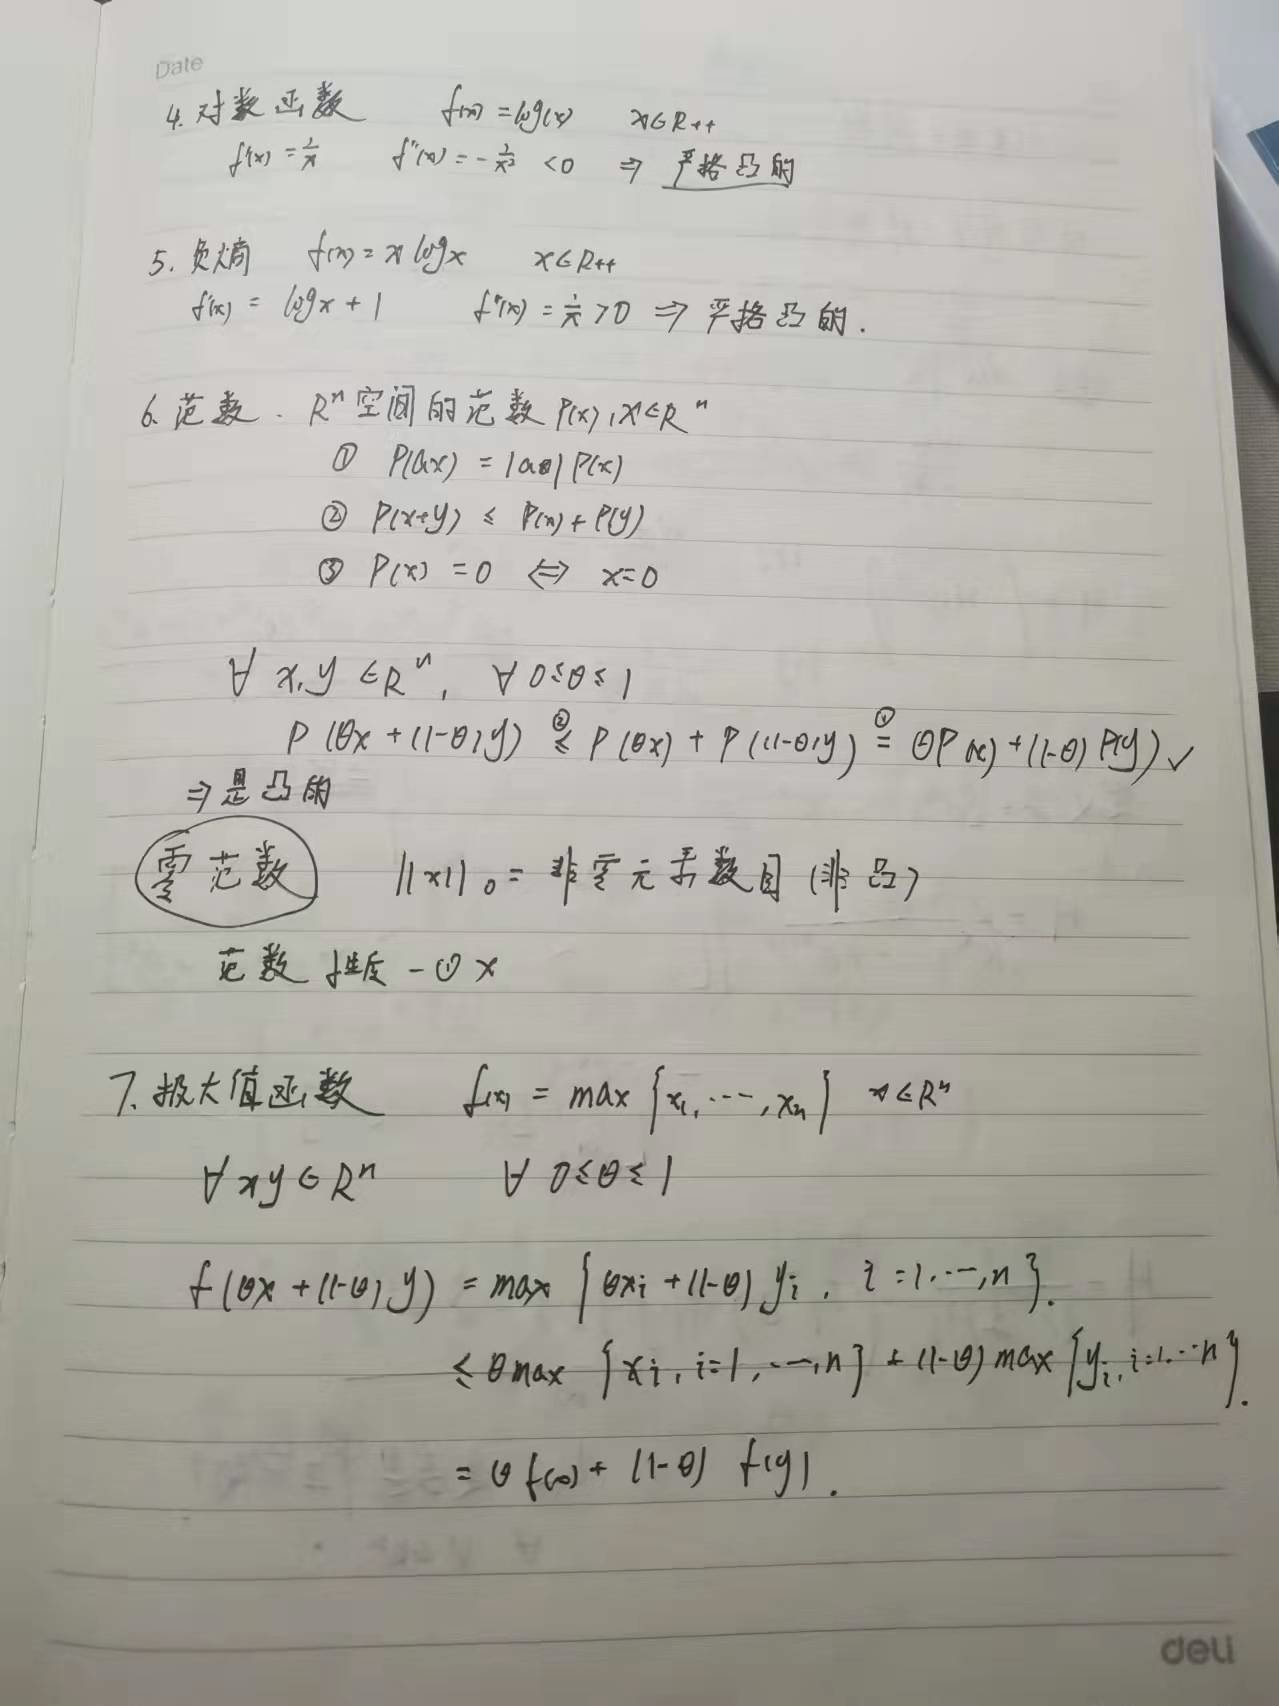 Date
4. 对数函数 f(x) = log(x) x∈R++
f'(x) = 1/x f''(x) = -1/x² <0 ⇒ 严格凸的
5. 负熵 f(x) = x log x x∈R++
f'(x) = log x + 1 f''(x) = 1/x >0 ⇒ 严格凸的.
6. 范数. Rⁿ空间的范数 P(x), x∈Rⁿ
① P(ax) = |a| P(x)
② P(x+y) ≤ P(x) + P(y)
③ P(x) = 0 ⇔ x=0
∀ x, y ∈Rⁿ, ∀ 0≤θ≤1
P(θx + (1-θ)y) ≤② P(θx) + P((1-θ)y) =① θP(x) + (1-θ)P(y) ✓
⇒ 是凸的
零范数 ||x||₀ = 非零元素数目 (非凸)
范数性质 - ① ×
7. 极大值函数 f(x) = max {x₁, ⋯, xₙ} x∈Rⁿ
∀ x y ∈ Rⁿ ∀ 0≤θ≤1
f(θx + (1-θ)y) = max {θxᵢ + (1-θ)yᵢ, i = 1, ⋯, n}.
≤ θ max {xᵢ, i=1, ⋯, n} + (1-θ) max {yᵢ, i=1, ⋯ n}.
= θ f(x) + (1-θ) f(y).
deli